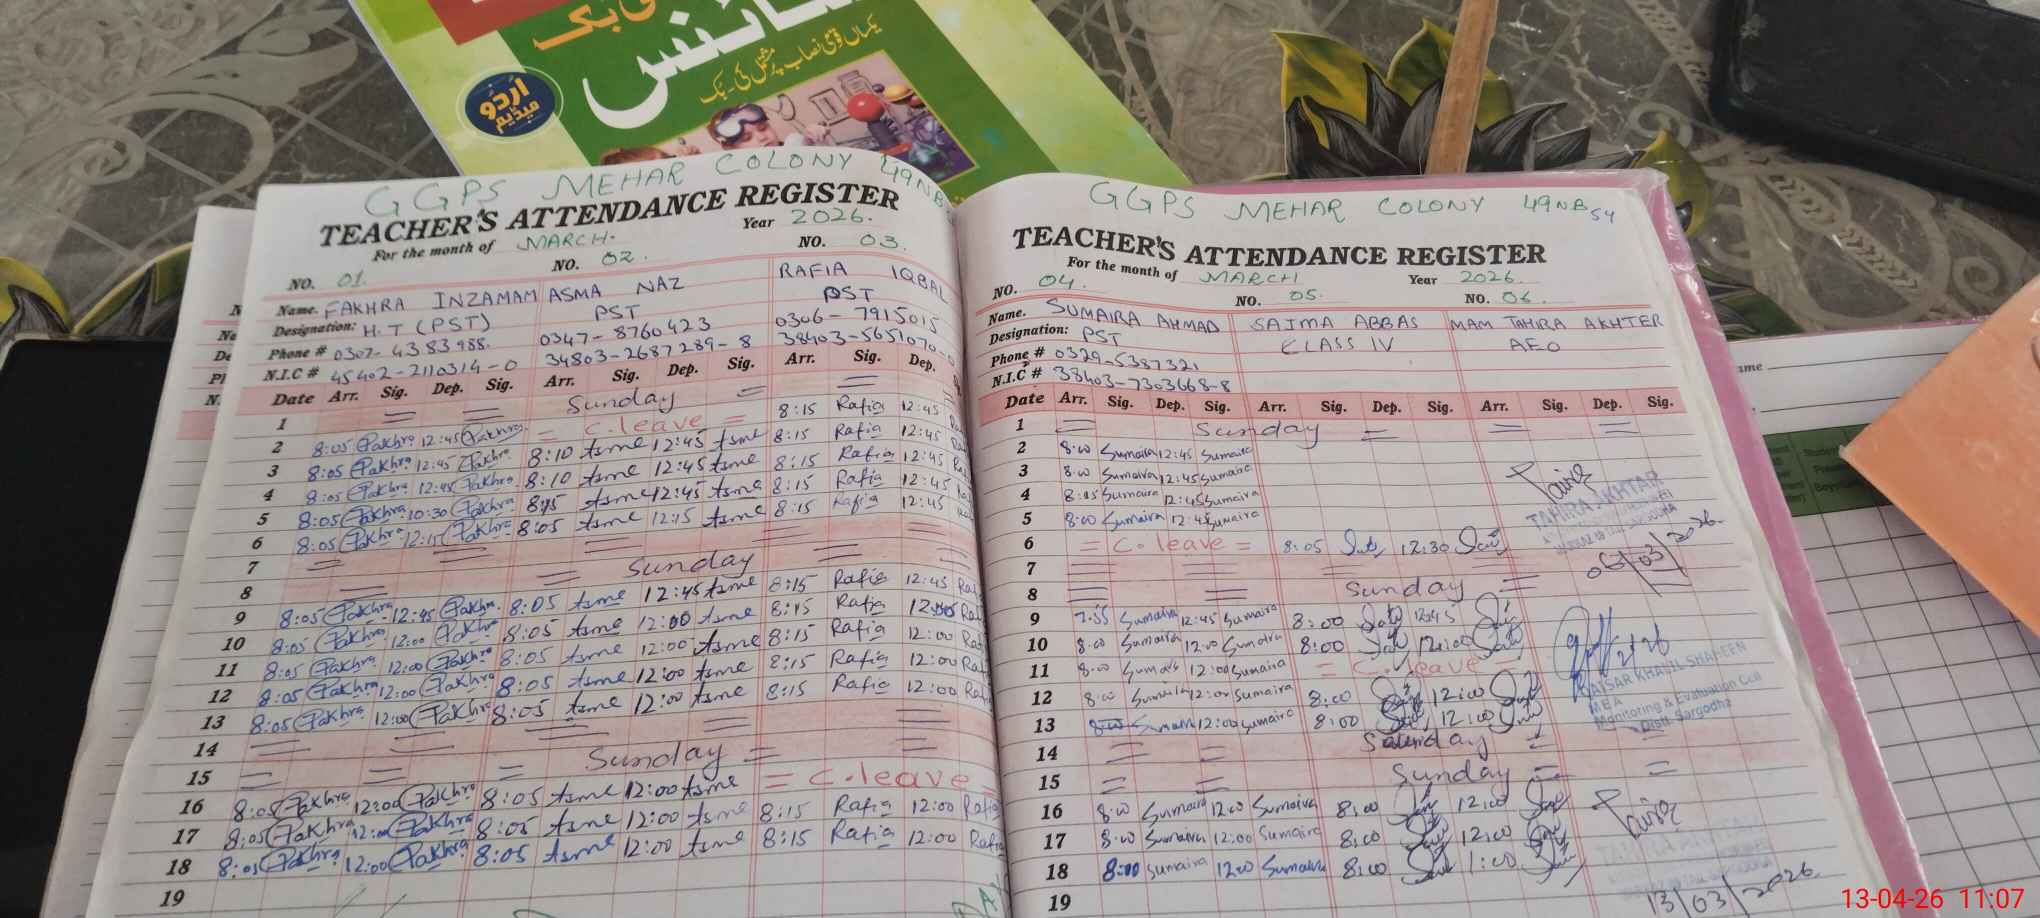 سائنس
کی بک
یکساں قومی نصاب پر مشتمل کی۔بک
اُردُو
میڈیم
GGPS MEHAR COLONY 49NB
TEACHER'S ATTENDANCE REGISTER
For the month of MARCH. Year 2026.
NO. 01. NO. 02. NO. 03.
Name. FAKHRA INZAMAM ASMA NAZ RAFIA IQBAL
Designation: H.T (PST) PST PST
Phone # 0307-4383988. 0347-8760423 0306-7915015
N.I.C # 45402-2110314-0 34803-2687289-8 38403-5651070-0
Date Arr. Sig. Dep. Sig. Arr. Sig. Dep. Sig. Arr. Sig. Dep.
1 = = Sunday = =
2 8:05 Fakhra 12:45 Fakhra = C.leave = 8:15 Rafia 12:45
3 8:05 Fakhra 12:45 Fakhra 8:10 Asme 12:45 Asme 8:15 Rafia 12:45
4 8:05 Fakhra 12:45 Fakhra 8:10 Asme 12:45 Asme 8:15 Rafia 12:45
5 8:05 Fakhra 10:30 Fakhra 8:15 Asme 12:45 Asme 8:15 Rafia 12:45
6 8:05 Fakhra 12:15 Fakhra 8:05 Asme 12:15 Asme 8:15 Rafia 12:45
7 = = = = =
8 = = Sunday =
9 8:05 Fakhra 12:45 Fakhra 8:05 Asme 12:45 Asme 8:15 Rafia 12:45
10 8:05 Fakhra 12:00 Fakhra 8:05 Asme 12:00 Asme 8:15 Rafia
11 8:05 Fakhra 12:00 Fakhra 8:05 Asme 12:00 Asme 8:15 Rafia 12:00
12 8:05 Fakhra 12:00 Fakhra 8:05 Asme 12:00 Asme 8:15 Rafia 12:00
13 8:05 Fakhra 12:00 Fakhra 8:05 Asme 12:00 Asme 8:15 Rafia 12:00
14 = = = = =
15 = = = Sunday =
16 8:05 Fakhra 12:00 Fakhra 8:05 Asme 12:00 Asme = C.leave =
17 8:05 Fakhra 12:00 Fakhra 8:05 Asme 12:00 Asme 8:15 Rafia 12:00 Rafia
18 8:05 Fakhra 12:00 Fakhra 8:05 Asme 12:00 Asme 8:15 Rafia 12:00 Rafia
19
GGPS MEHAR COLONY 49NB 54
TEACHER'S ATTENDANCE REGISTER
For the month of MARCH Year 2026.
NO. 04. NO. 05. NO. 06.
Name. SUMAIRA AHMAD SAIMA ABBAS MAM TAHIRA AKHTER
Designation: PST CLASS IV AEO
Phone # 0329-5387321
N.I.C # 38403-7303668-8
Date Arr. Sig. Dep. Sig. Arr. Sig. Dep. Sig. Arr. Sig. Dep. Sig.
1 = Sunday = = =
2 8:00 Sumaira 12:45 Sumaira
3 8:00 Sumaira 12:45 Sumaira
4 8:05 Sumaira 12:45 Sumaira
5 8:00 Sumaira 12:45 Sumaira
TAHIRA AKHTAR
6 = C.leave = 8:05 12:30
06/03/2026.
7 = = = =
8 = = Sunday =
9 7:55 Sumaira 12:45 Sumaira 8:00 12:45
10 8:00 Sumaira 12:00 Sumaira 8:00 12:00
11 8:00 Sumaira 12:00 Sumaira = C.leave =
12 8:00 Sumaira 12:00 Sumaira 8:00 12:00
13 8:00 Sumaira 12:00 Sumaira 8:00 12:00
QAISAR KHALIL SHAHEEN
MEA
Monitoring & Evaluation Cell
Distt. Sargodha
14 = = =
15 = = Sunday = =
16 8:00 Sumaira 12:00 Sumaira 8:00 12:00
17 8:00 Sumaira 12:00 Sumaira 8:00 12:00
18 8:00 Sumaira 12:00 Sumaira 8:00 1:00
13/03/2026.
19
13-04-26 11:07